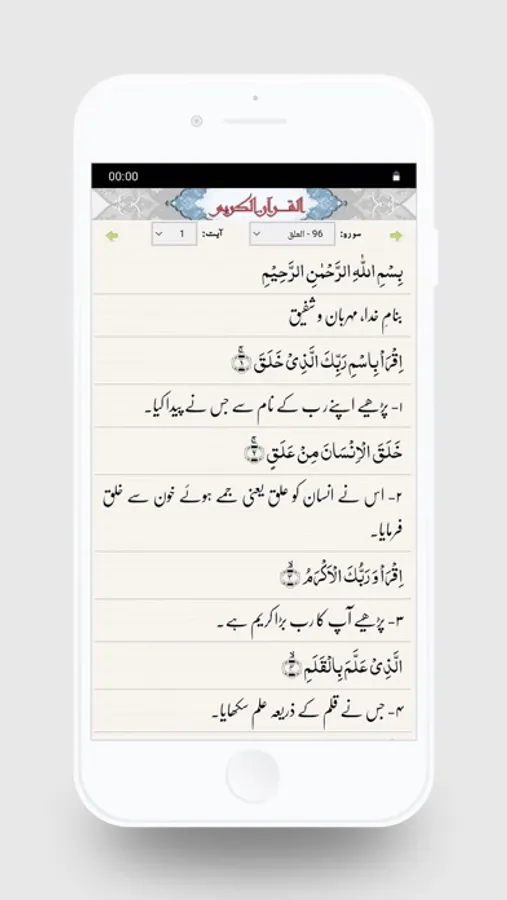 00:00
القرآن الكريم
سورہ: 96 - العلق آیت: 1
بِسْمِ اللّٰهِ الرَّحْمٰنِ الرَّحِیْمِ
بنامِ خدا، مہربان و شفیق
اِقْرَاْ بِاسْمِ رَبِّكَ الَّذِیْ خَلَقَ ۚ﴿۱﴾
۱- پڑھیے اپنے رب کے نام سے جس نے پیدا کیا۔
خَلَقَ الْاِنْسَانَ مِنْ عَلَقٍ ۚ﴿۲﴾
۲- اس نے انسان کو علق یعنی جمے ہوئے خون سے خلق
فرمایا۔
اِقْرَاْ وَ رَبُّكَ الْاَكْرَمُ ۙ﴿۳﴾
۳- پڑھیے آپ کا رب بڑا کریم ہے۔
الَّذِیْ عَلَّمَ بِالْقَلَمِ ۙ﴿۴﴾
۴- جس نے قلم کے ذریعہ علم سکھایا۔